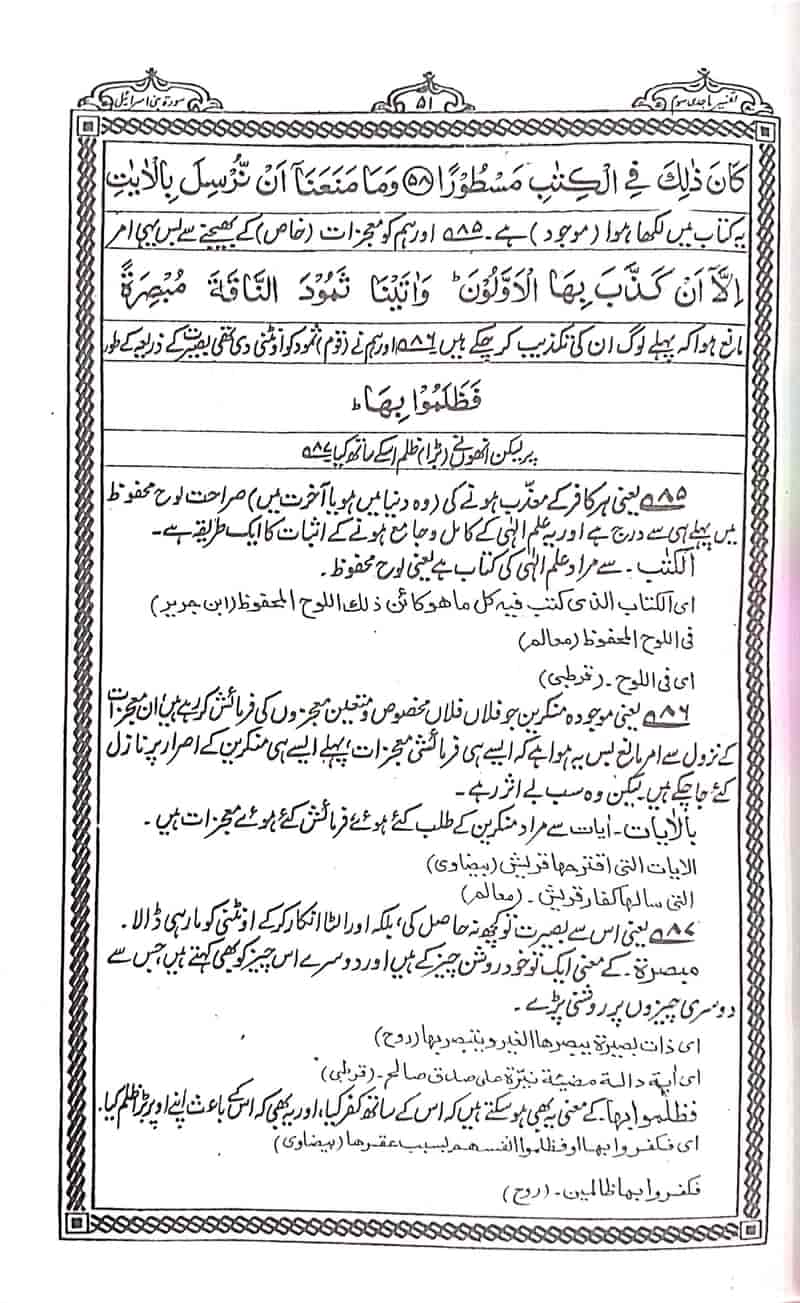 تفسیر ماجدی سوم
۵۱
سورۃ بنی اسرائیل
كَانَ ذٰلِكَ فِي الْكِتٰبِ مَسْطُوْرًا ﴿۵۸﴾ وَمَا مَنَعَنَآ اَنْ نُّرْسِلَ بِالْاٰيٰتِ
یہ کتاب میں لکھا ہوا (موجود) ہے۔ ۸۵؎ اور ہم کو معجزات (خاص) کے بھیجنے سے بس یہی امر
اِلَّآ اَنْ كَذَّبَ بِهَا الْاَوَّلُوْنَ ؕ وَاٰتَيْنَا ثَمُوْدَ النَّاقَةَ مُبْصِرَةً
مانع ہوا کہ پہلے لوگ ان کی تکذیب کر چکے ہیں ۸۶؎ اور ہم نے (قوم) ثمود کو اونٹنی دی تھی بصیرت کے ذریعہ کے طور
فَظَلَمُوْا بِهَا ؕ
پر لیکن انھوں نے (بڑا) ظلم اسکے ساتھ کیا ۸۷؎
۸۵؎ یعنی ہر کافر کے معذب ہونے کی (وہ دنیا میں ہو یا آخرت میں) صراحت لوح محفوظ
میں پہلے ہی سے درج ہے اور یہ علم الٰہی کے کامل و جامع ہونے کے اثبات کا ایک طریقہ ہے۔
الکتٰب۔ سے مراد علم الٰہی کی کتاب ہے یعنی لوح محفوظ۔
ای الکتاب الذی کتب فیه کل ما هو کائن ذلك اللوح المحفوظ (ابن جریر)
فی اللوح المحفوظ (معالم)
ای فی اللوح۔ (قرطبی)
۸۶؎ یعنی موجودہ منکرین جو فلاں فلاں مخصوص و متعین معجزوں کی فرمائش کر رہے ہیں ان معجزات
کے نزول سے امر مانع بس یہ ہوا ہے کہ ایسے ہی فرمائشی معجزات پہلے ایسے ہی منکرین کے اصرار پر نازل
کئے جا چکے ہیں۔ لیکن وہ سب بے اثر رہے۔
بالآیات۔ آیات سے مراد منکرین کے طلب کئے ہوئے فرمائش کئے ہوئے معجزات ہیں۔
الایات التی اقترحها قریش (بیضاوی)
التی سالها کفار قریش۔ (معالم)
۸۷؎ یعنی اس سے بصیرت تو کچھ نہ حاصل کی، بلکہ اور الٹا انکار کرکے اونٹنی کو مار ہی ڈالا۔
مبصرة۔ کے معنی ایک تو خود روشن چیز کے ہیں اور دوسرے اس چیز کو بھی کہتے ہیں جس سے
دوسری چیزوں پر روشنی پڑے۔
ای ذات بصیرة یبصرها الغیر ویتبصر بها (روح)
ای اٰیة دالة مضیئة نیّرة علی صدق صالح۔ (قرطبی)
فظلموا بها۔ کے معنی یہ بھی ہو سکتے ہیں کہ اس کے ساتھ کفر کیا، اور یہ بھی کہ اس کے باعث اپنے اوپر بڑا ظلم کیا۔
ای فکفروا بها او فظلموا انفسهم بسبب عقرها (بیضاوی)
فکفروا بها ظالمین۔ (روح)